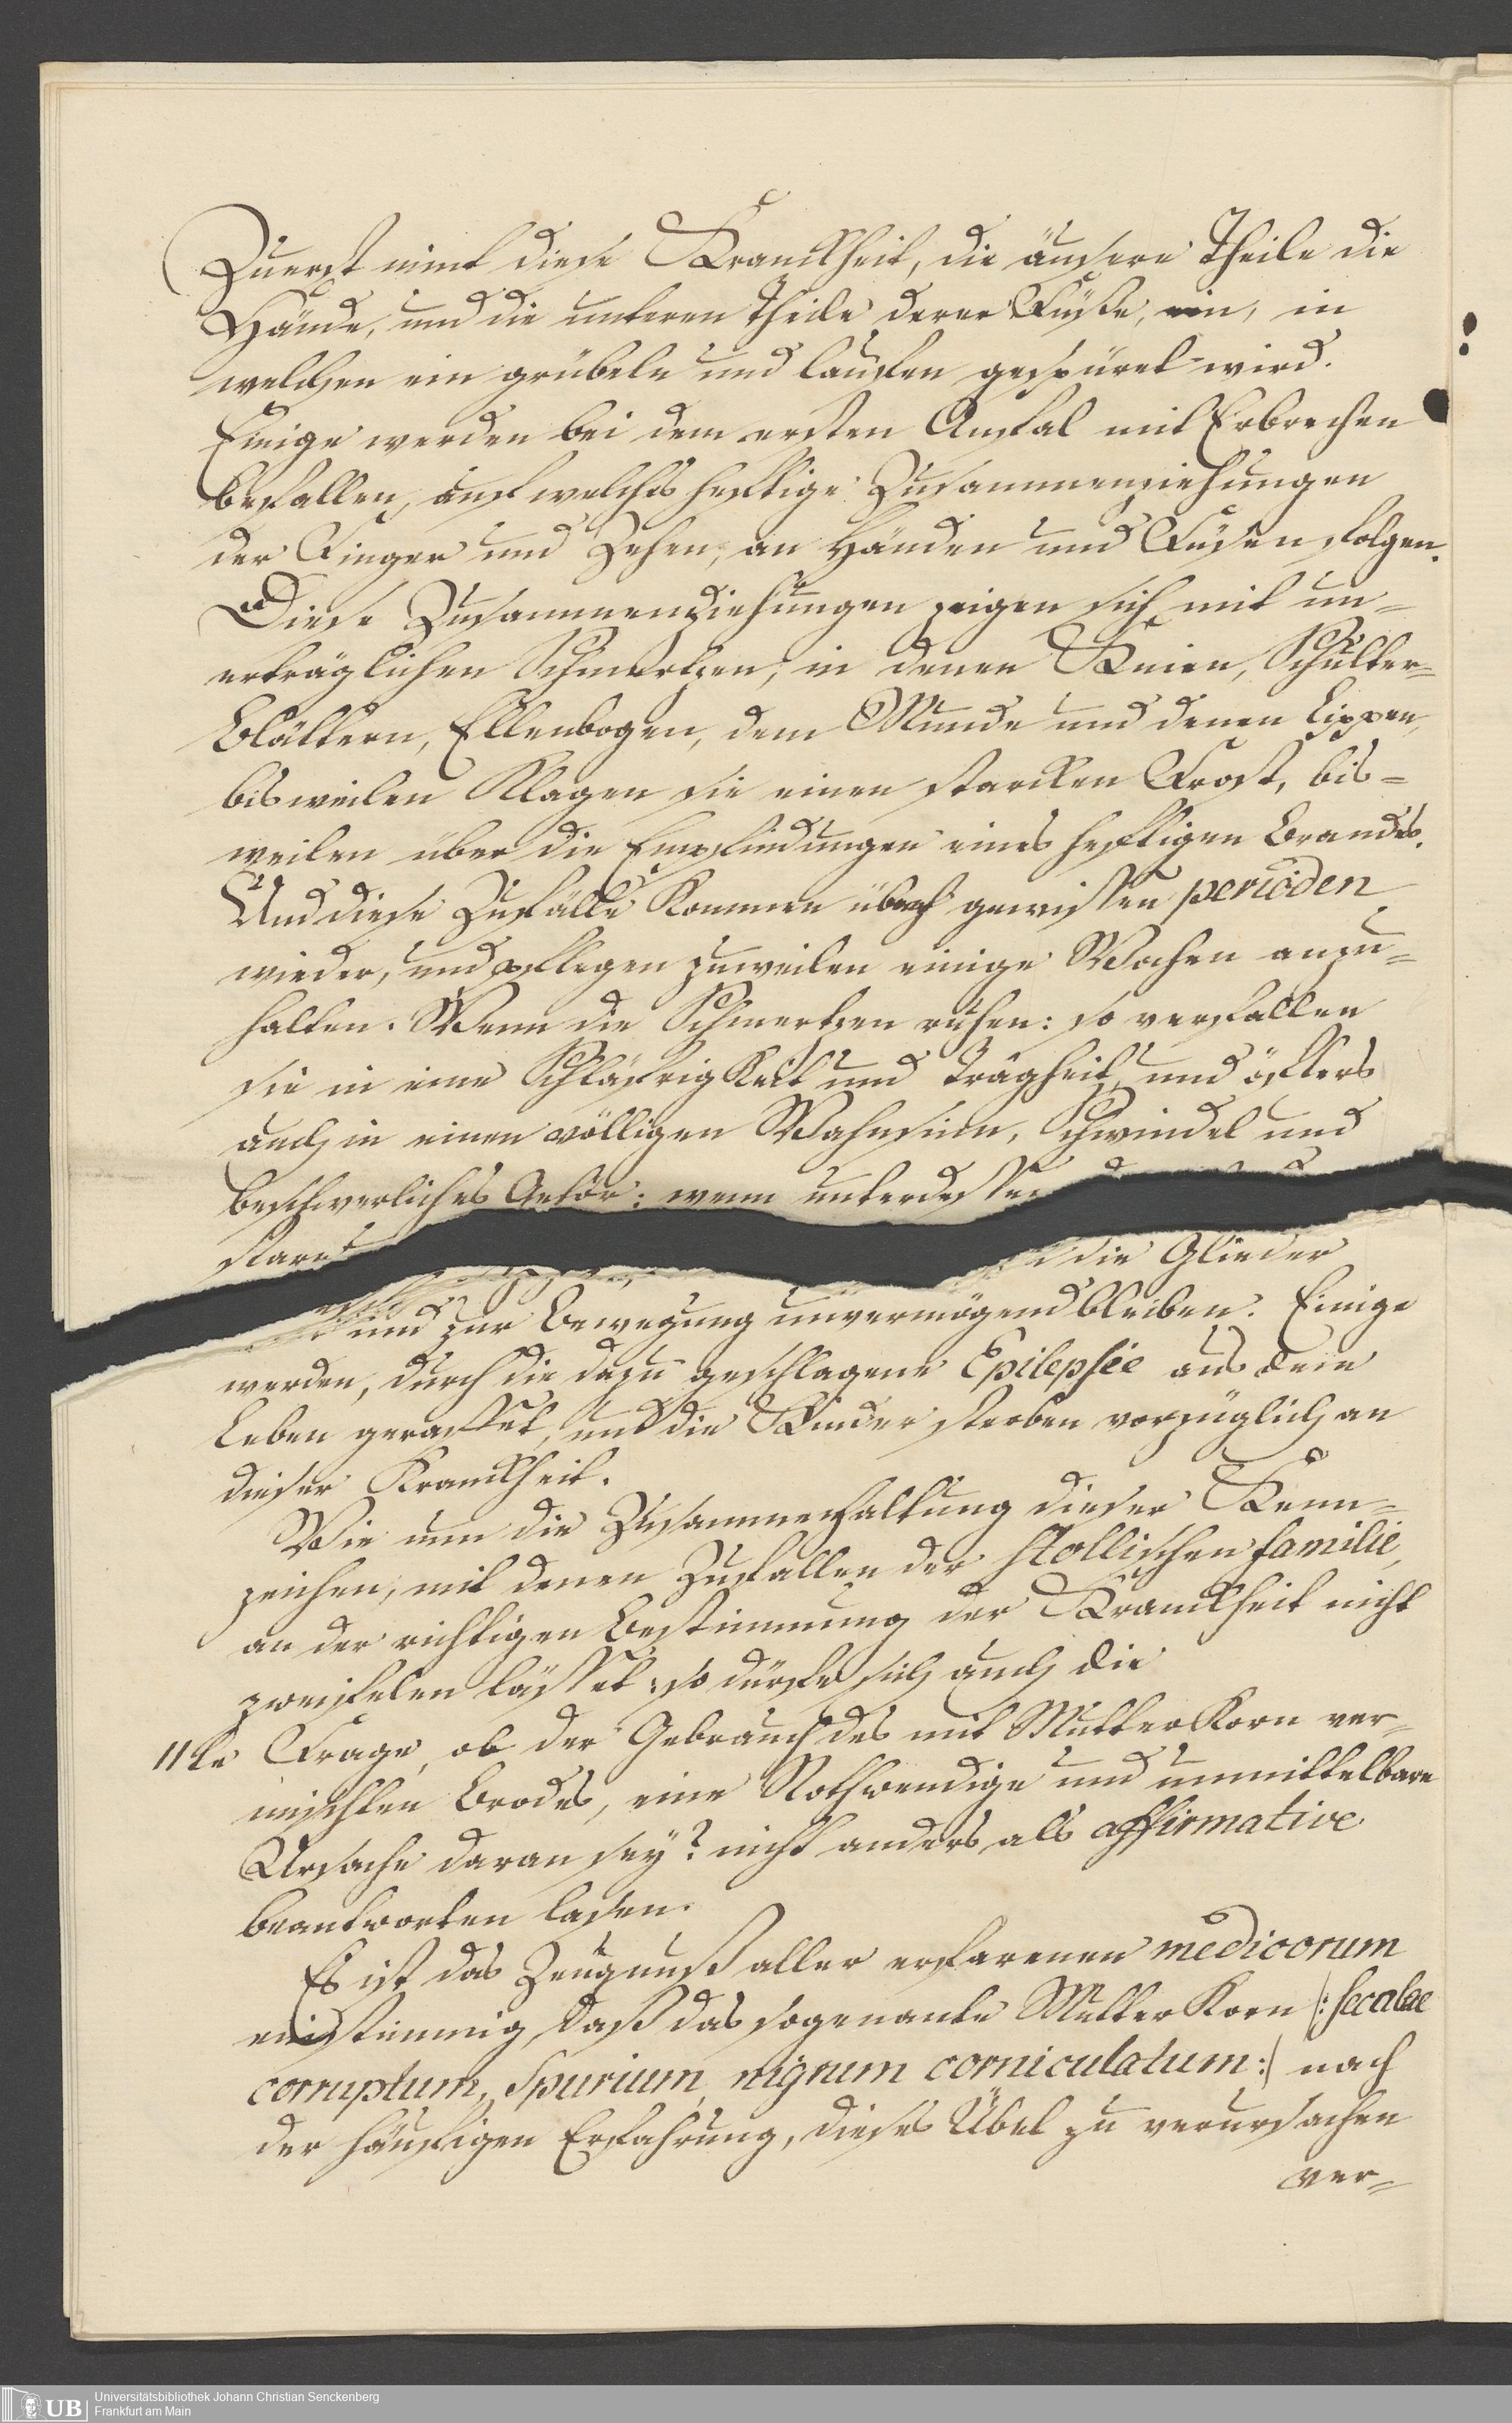 Zuerst nimt diese Kranckheit, die äusere Theile die
Hände, und die unteren Theile derer Füße, ein, in
welchen ein grübeln und laufen gespüret wird.
Einige werden bei dem ersten Anfal mit Erbrechen
befallen, auf welches heftige Zusammenziehungen
der Finger und Zehen, an Händen und Füsen folgen.
Diese Zusammenziehungen zeigen sich mit un-
erträglichen Schmertzen, in denen Knien, Schulter-
Blättern, Ellenbogen, dem Munde und denen Lippen,
bisweilen Klagen sie einen starcken Frost, bis-
weilen über die Empfindungen eines heftigen Brandes.
Und diese Zufälle Kommen nach gewissen perioden
wieder, und pflegen zuweilen einige Wochen anzu-
halten. Wenn die Schmertzen ruhen: so verfallen
sie in eine Schläfrigkeit und Trägheit, und öfters
auch in einen völligen Wahnsinn, Schwindel und
beschwerliches Gehör: wenn unterdessen
starr
die Glieder
und zur Bewegung unvermögend bleiben. Einige
werden, durch die dazu geschlagene Epilepsie aus dem
Leben geraffet, und die Kinder sterben vorzüglich an
dieser Kranckheit.
Wie nun die Zusammenhaltung dieser Kenn-
zeichen, mit denen Zufällen der Stollischen familie,
an der richtigen Bestimmung der Kranckheit nicht
zweifelen lässet: so dürfte sich auch die
11te Frage, ob der Gebrauch des mit Mutter Korn ver-
mischten Brodes, eine Nothwendige und unmittelbare
Ursache daran sey? nicht anders als affirmative
beantworten lasen.
Es ist das Zeugnuß aller erfarenen medicorum
einstimmig, daß das sogenante Mutter Korn (: secalae
corruptum, spurium, nigrum corniculatum :) nach
der häufigen Erfahrung, dieses Übel zu verursachen
ver-
UB Universitätsbibliothek Johann Christian Senckenberg
Frankfurt am Main